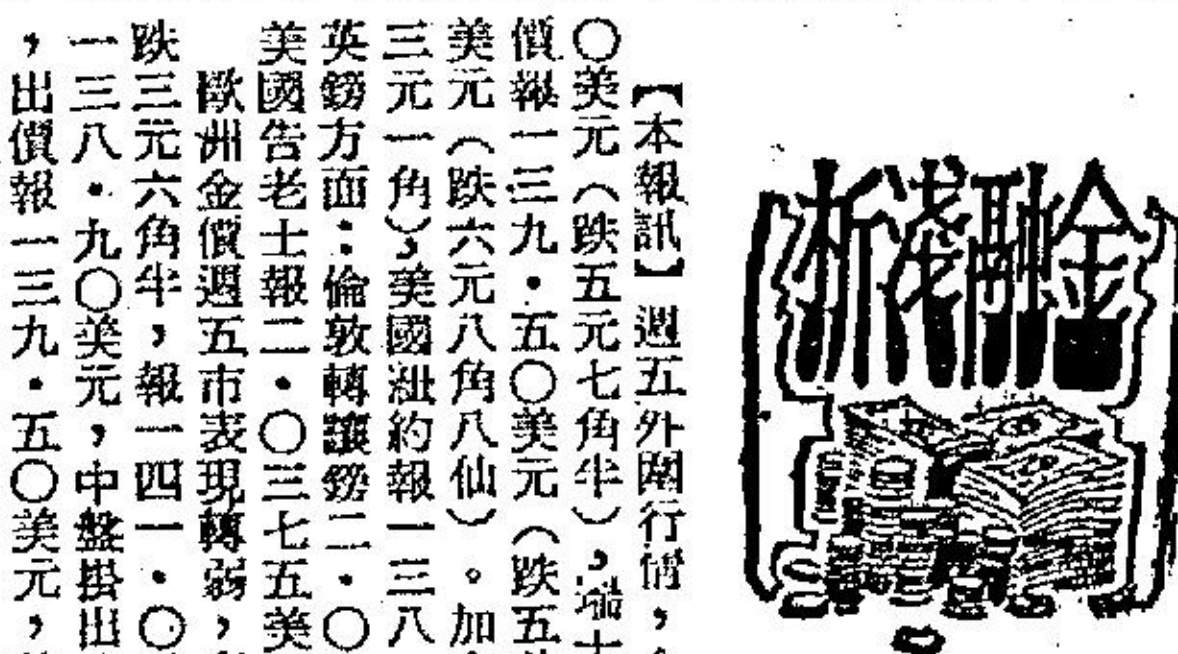 金融淺析
【本報訊】週五外圍行情，
〇美元（跌五元七角半），瑞士
價報一三九・五〇美元（跌五
美元（跌六元八角八仙）。加
三元一角），美國紐約報一三八
英鎊方面：倫敦轉讓鎊二・〇
美國告老士報二・〇三七五美
歐洲金價週五市表現轉弱，
跌三元六角半，報一四一・〇
一三八・九〇美元，中盤掛出
，出價報一三九・五〇美元，